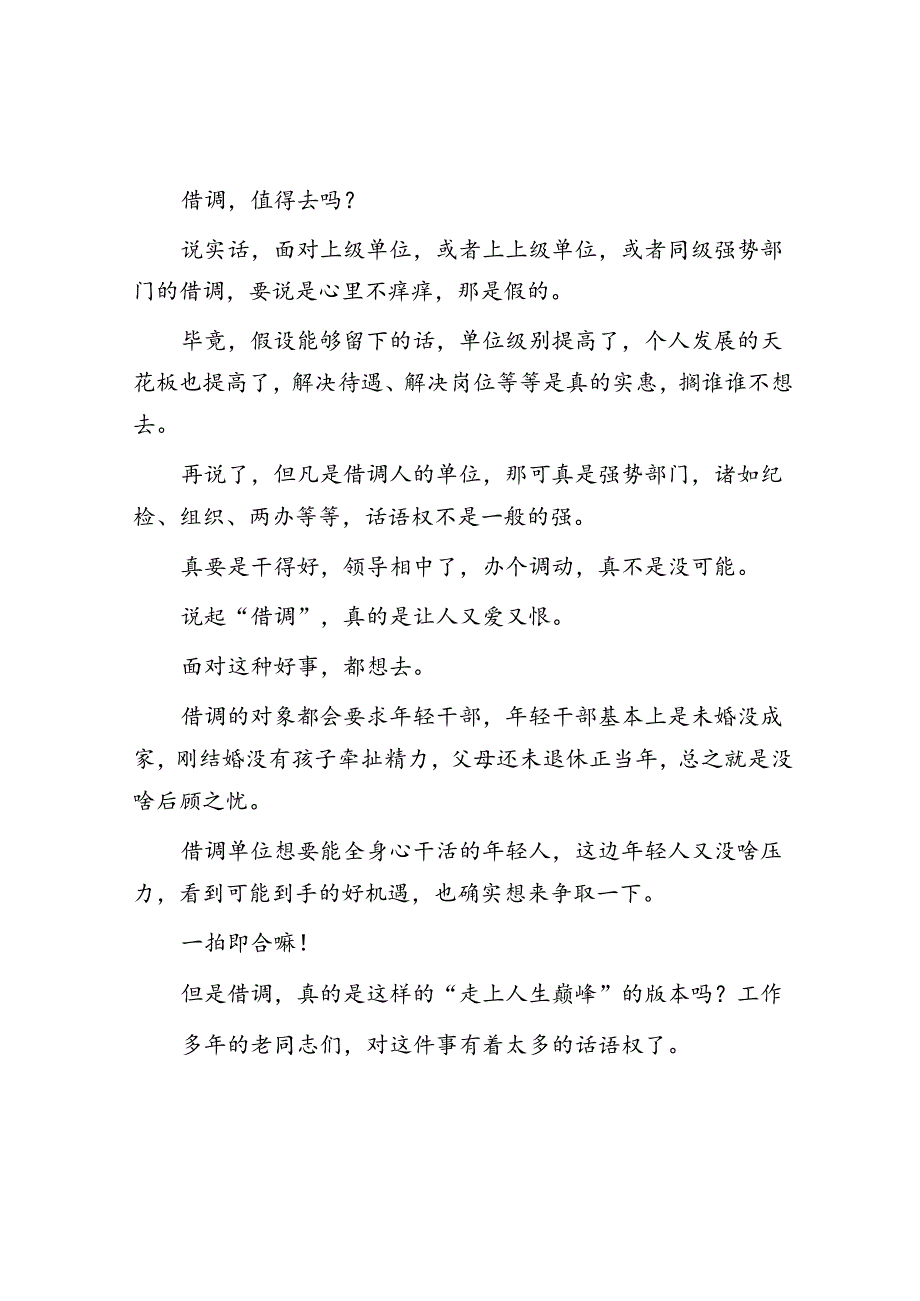 借调，值得去吗？
说实话，面对上级单位，或者上上级单位，或者同级强势部
门的借调，要说是心里不痒痒，那是假的。
毕竟，假设能够留下的话，单位级别提高了，个人发展的天
花板也提高了，解决待遇、解决岗位等等是真的实惠，搁谁谁不想
去。
再说了，但凡是借调人的单位，那可真是强势部门，诸如纪
检、组织、两办等等，话语权不是一般的强。
真要是干得好，领导相中了，办个调动，真不是没可能。
说起“借调”，真的是让人又爱又恨。
面对这种好事，都想去。
借调的对象都会要求年轻干部，年轻干部基本上是未婚没成
家，刚结婚没有孩子牵扯精力，父母还未退休正当年，总之就是没
啥后顾之忧。
借调单位想要能全身心干活的年轻人，这边年轻人又没啥压
力，看到可能到手的好机遇，也确实想来争取一下。
一拍即合嘛！
但是借调，真的是这样的“走上人生巅峰”的版本吗？工作
多年的老同志们，对这件事有着太多的话语权了。